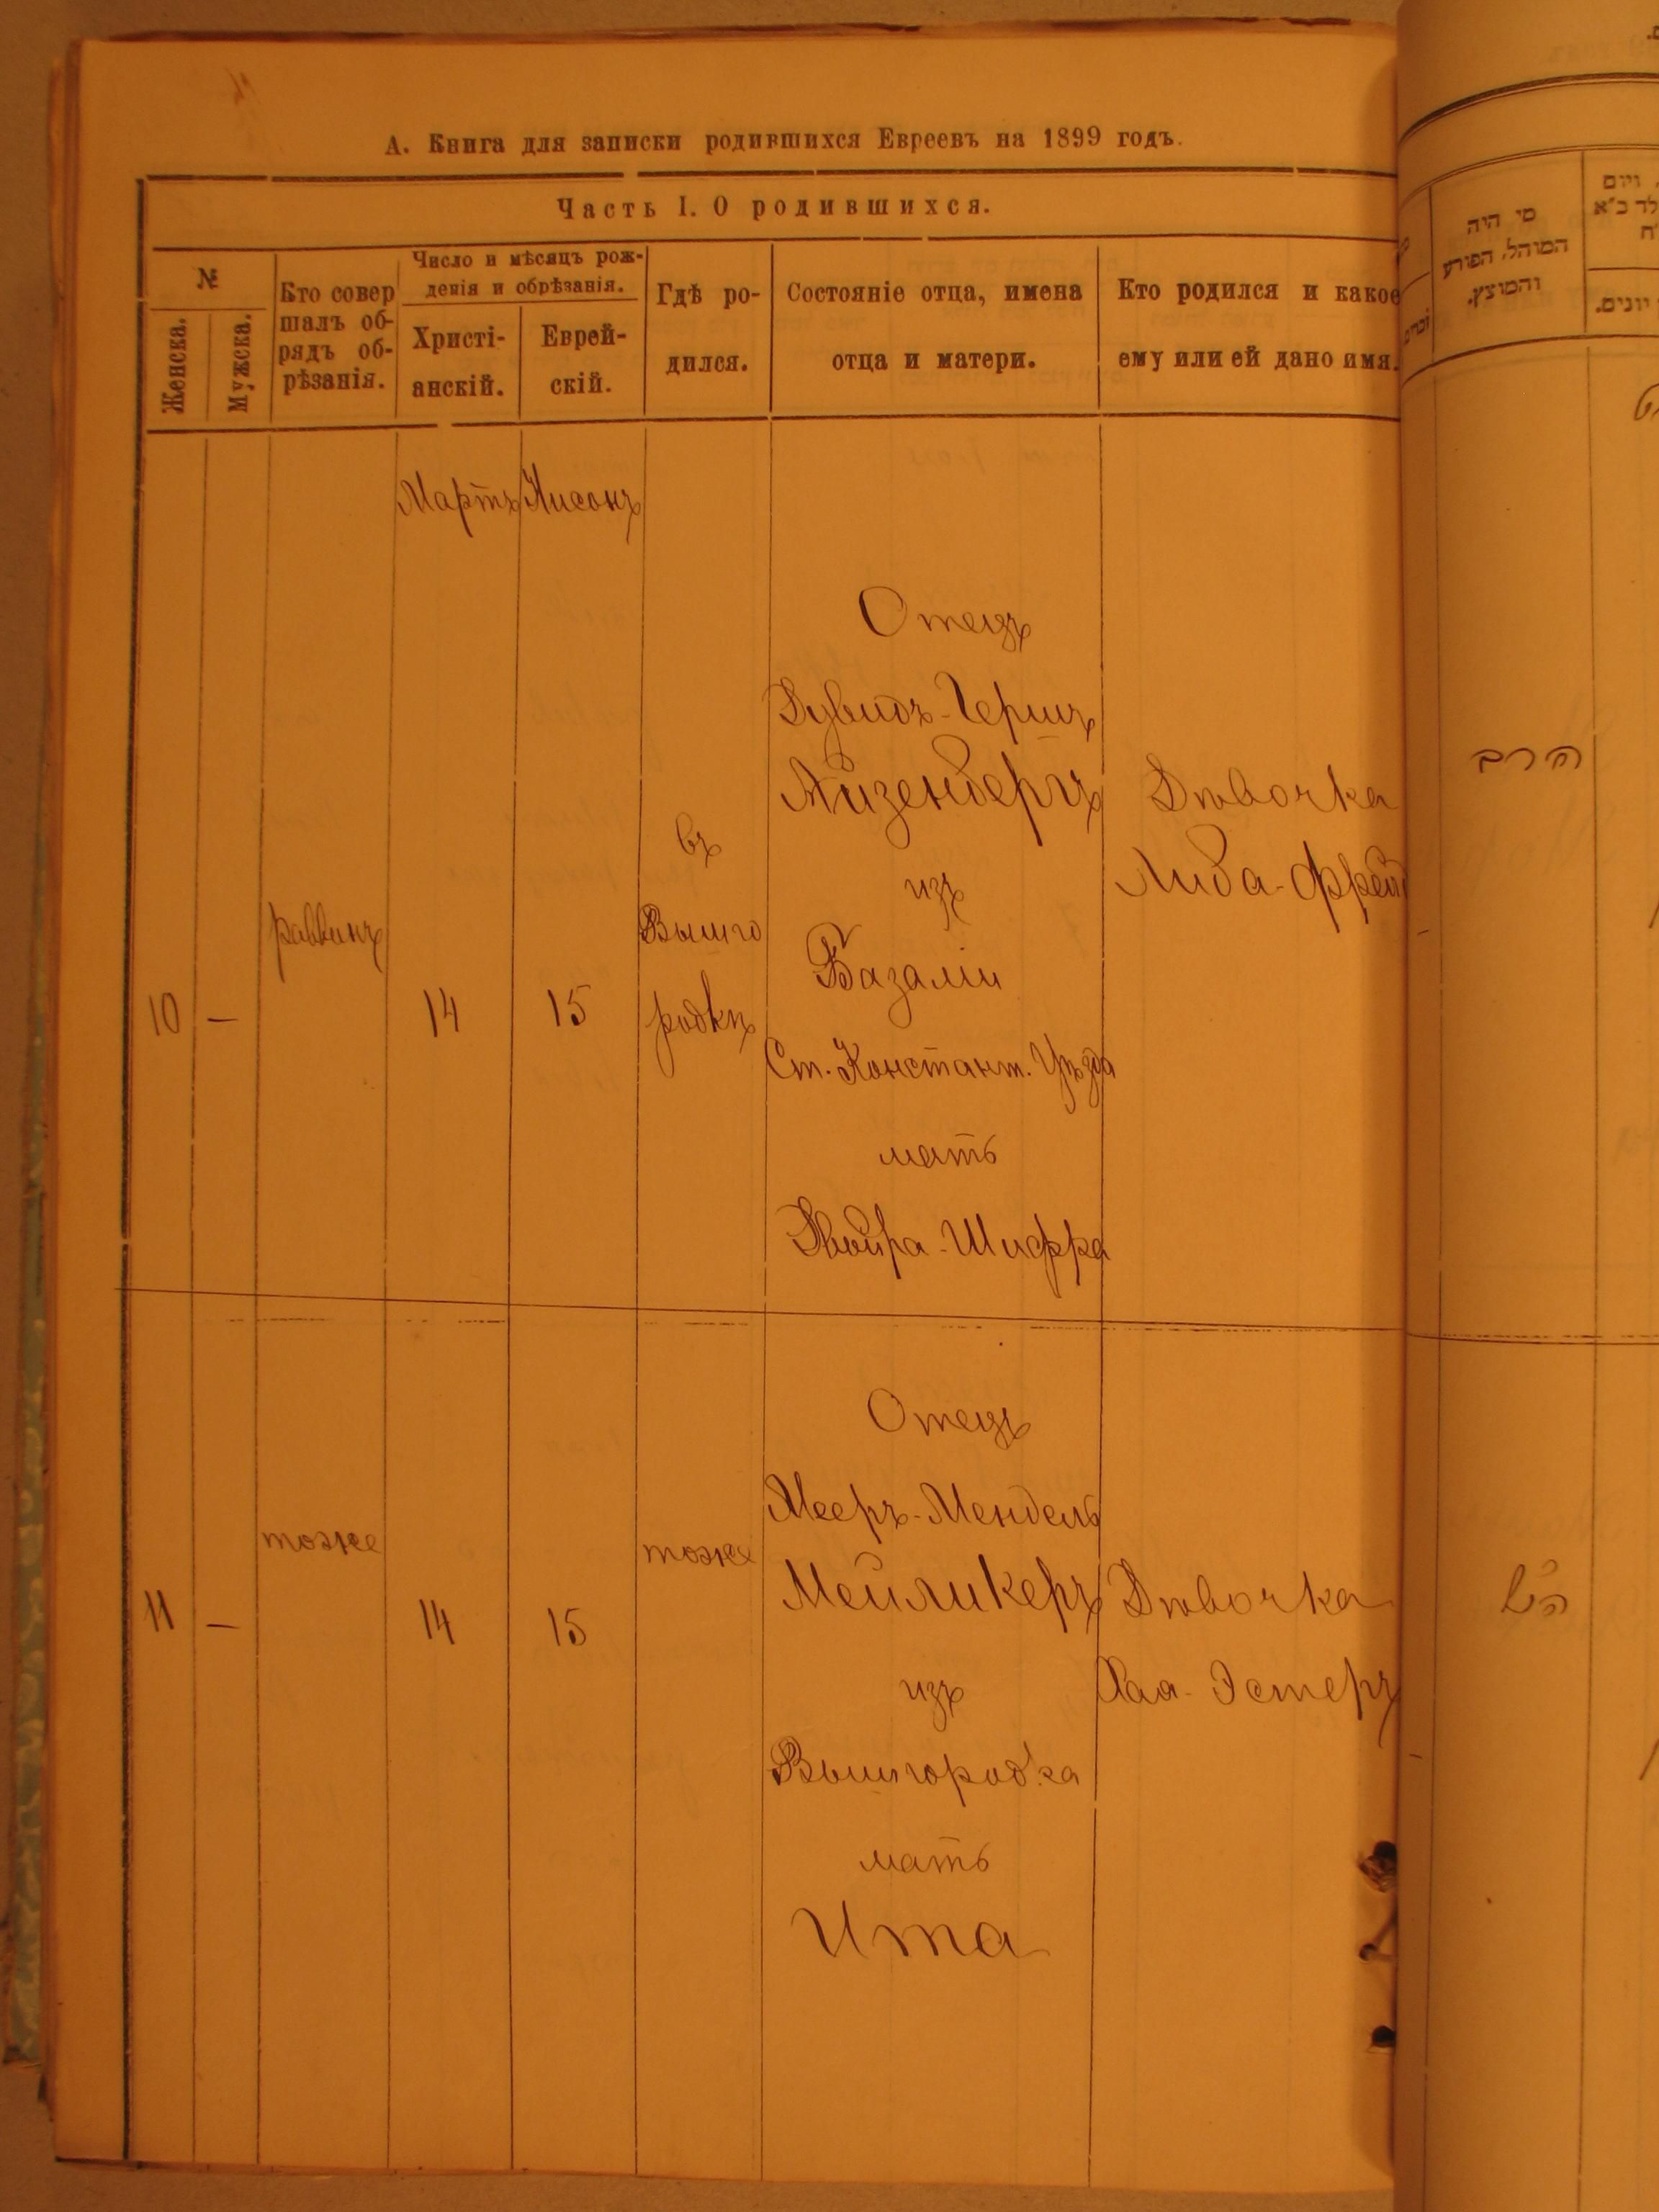 А. Книга для записки родившихся Евреевъ на 1899 годъ.
Часть I. О родившихся.
№
Женска.
Мужска.
Кто совер
шалъ об-
рядъ об-
рѣзанія.
Число и мѣсяцъ рож-
денія и обрѣзанія.
Христі-
анскій.
Еврей-
скій.
Гдѣ ро-
дился.
Состояніе отца, имена
отца и матери.
Кто родился и какое
ему или ей дано имя.
Мартъ
Нисонъ
10
—
раввинъ
14
15
въ
Вышго
родкѣ
Отецъ
Дувидъ-Гершъ
Айзенбергъ
изъ
Базаліи
Ст. Констант. Уѣзда
мать
Двойра-Шифра
Дѣвочка
Либа-Фрейд
11
—
тоже
14
15
тоже
Отецъ
Мееръ-Мендель
Мейликеръ
изъ
Вышгородка
мать
Ита
Дѣвочка
Хая-Эстеръ
מי היה
המוהל, הפורע
והמוצץ.
ויום
יונים.
הרב